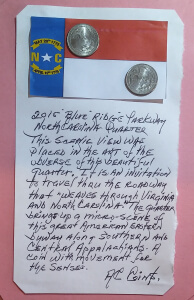 N C
2015 Blue Ridge Parkway
North Carolina Quarter
This scenic view was
placed in the art of the
obverse of this beautiful
quarter. It is an invitation
to travel thru the roadway
that "weaves through Virginia
and North Carolina". The quarter
brings up a micro-scene of
this great American Eastern
runway along southern and
Central Appalachians. A
coin with movement for
the senses.